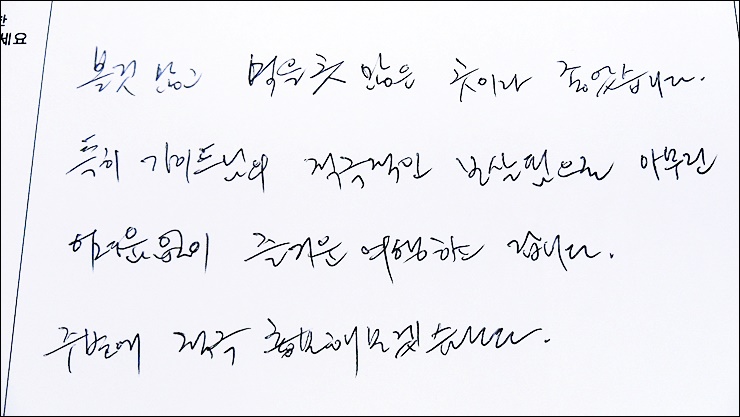 한
세요
볼것 많고 먹을곳 많은 곳이라 좋았습니다.
특히 가이드님의 적극적인 보살핌으로 아무런
어려움없이 즐거운 여행하고 갑니다.
주변에 적극 홍보해보겠습니다.